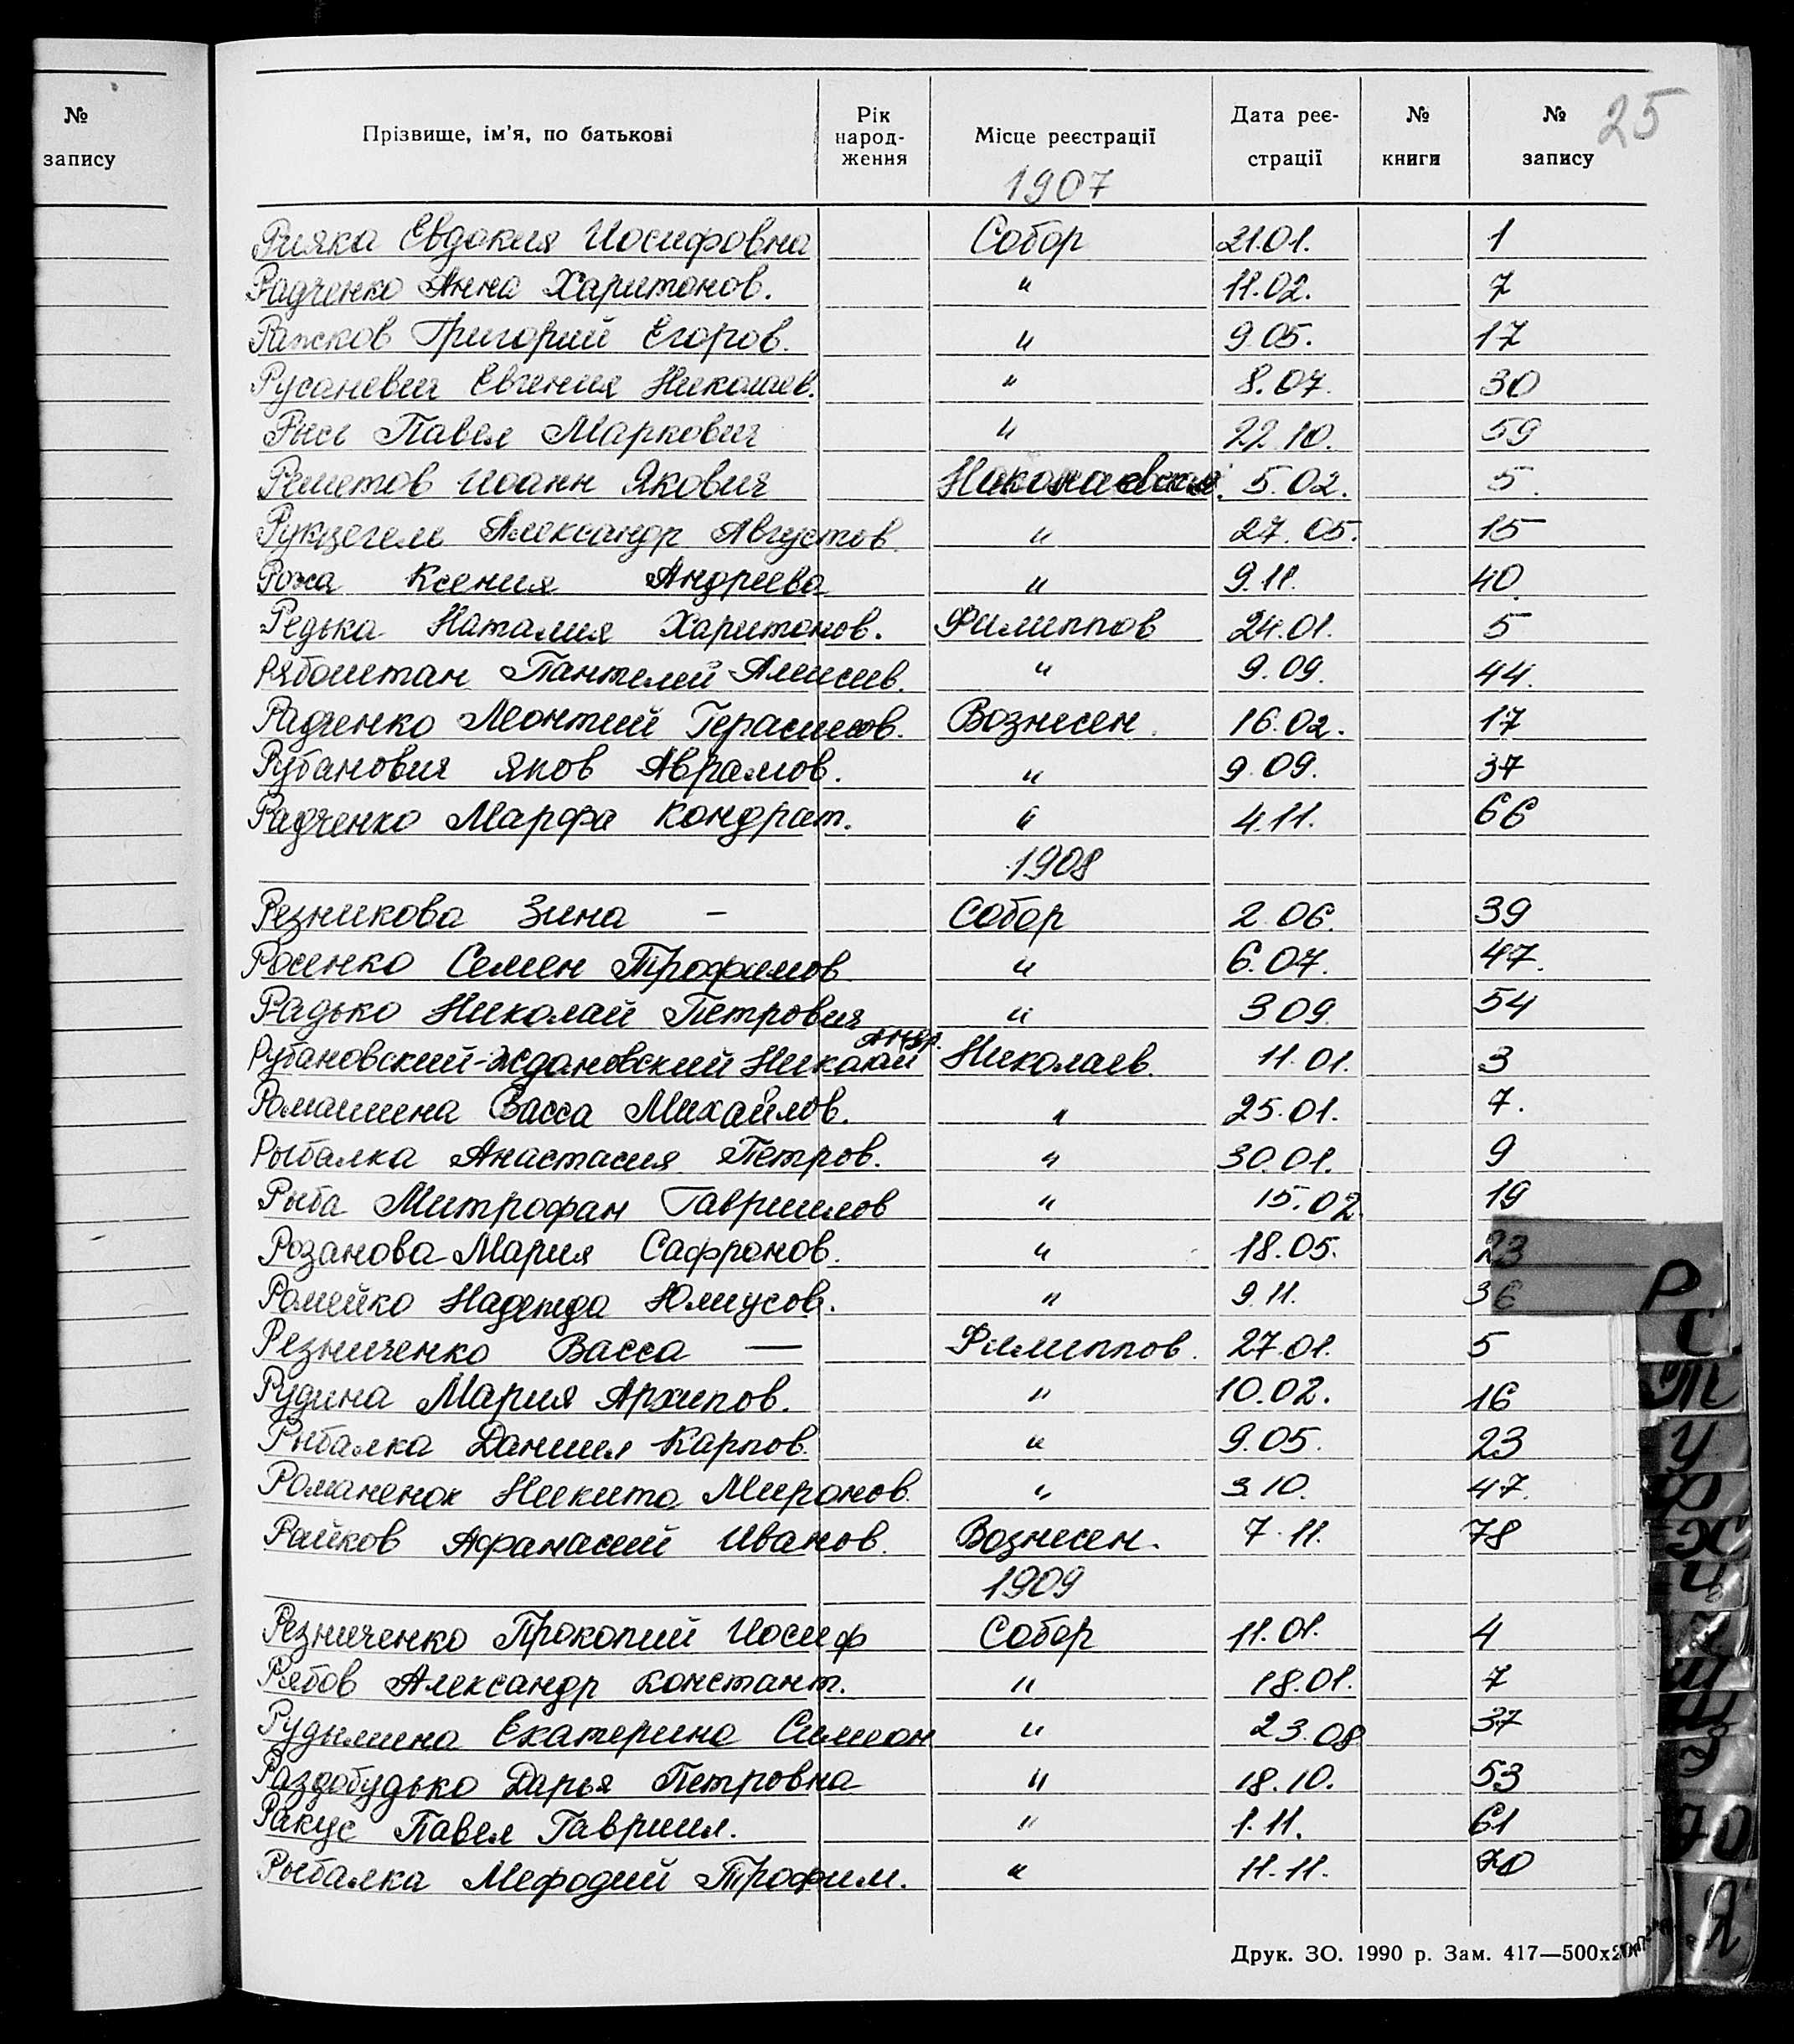 № запису
25
Прізвище, ім'я, по батькові | Рік народження | Місце реєстрації | Дата реєстрації | № книги | № запису
1907
Рияка Евдокия Иосифовна Собор 21.01. 1
Радченко Анна Харитонов. " 11.02. 7
Ражков Григорий Егоров. " 9.05. 17
Русаневич Евгения Николаев. " 8.07. 30
Рысь Павел Маркович " 22.10. 59
Решетов Иоанн Якович Николаевская. 5.02. 5.
Александр Августов. " 27.05. 15
Рожа Ксения Андреева " 9.11. 40.
Редька Наталия Харитонов. Филиппов 24.01. 5
Рябоштан Пантелей Алексеев. " 9.09. 44.
Радченко Леонтий Герасимов. Вознесен. 16.02. 17
Рубанович Яков Аврамов. " 9.09. 37
Радченко Марфа Кондрат. " 4.11. 66
1908
Резникова Зина – Собор 2.06. 39
Росенко Семен Трофимов " 6.07. 47.
Радько Николай Петрович " 3 09. 54
Рубановский-Ждановский Николай Андр. Николаев. 11.01. 3
Ромашина Васса Михайлов. " 25.01. 7.
Рыбалка Анастасия Петров. " 30.01. 9
Рыба Митрофан Гавриилов " 15.02. 19
Розанова Мария Сафронов. " 18.05. 23
Ромейко Надежда Юлиусов. " 9.11. 36
Резниченко Васса — Филиппов. 27.01. 5
Рудина Мария Архипов. " 10.02. 16
Рыбалка Даниил Карпов. " 9.05. 23
Романенок Никита Миронов. " 3.10. 47.
Райков Афанасий Иванов. Вознесен. 7.11. 78
1909
Резниченко Прокопий Иосиф Собор 11.01. 4
Рябов Александр Констант. " 18.01. 7
Рудымина Екатерина Симеон " 23.08 37
Раздобудько Дарья Петровна " 18.10. 53
Ракус Павел Гавриил. " 1.11. 61
Рыбалка Мефодий Трофим. " 11.11. 70
Р
С
Т
У
Ф
Х
Ц
Ш
Э
Ю
Я
Друк. ЗО. 1990 р. Зам. 417—500х2